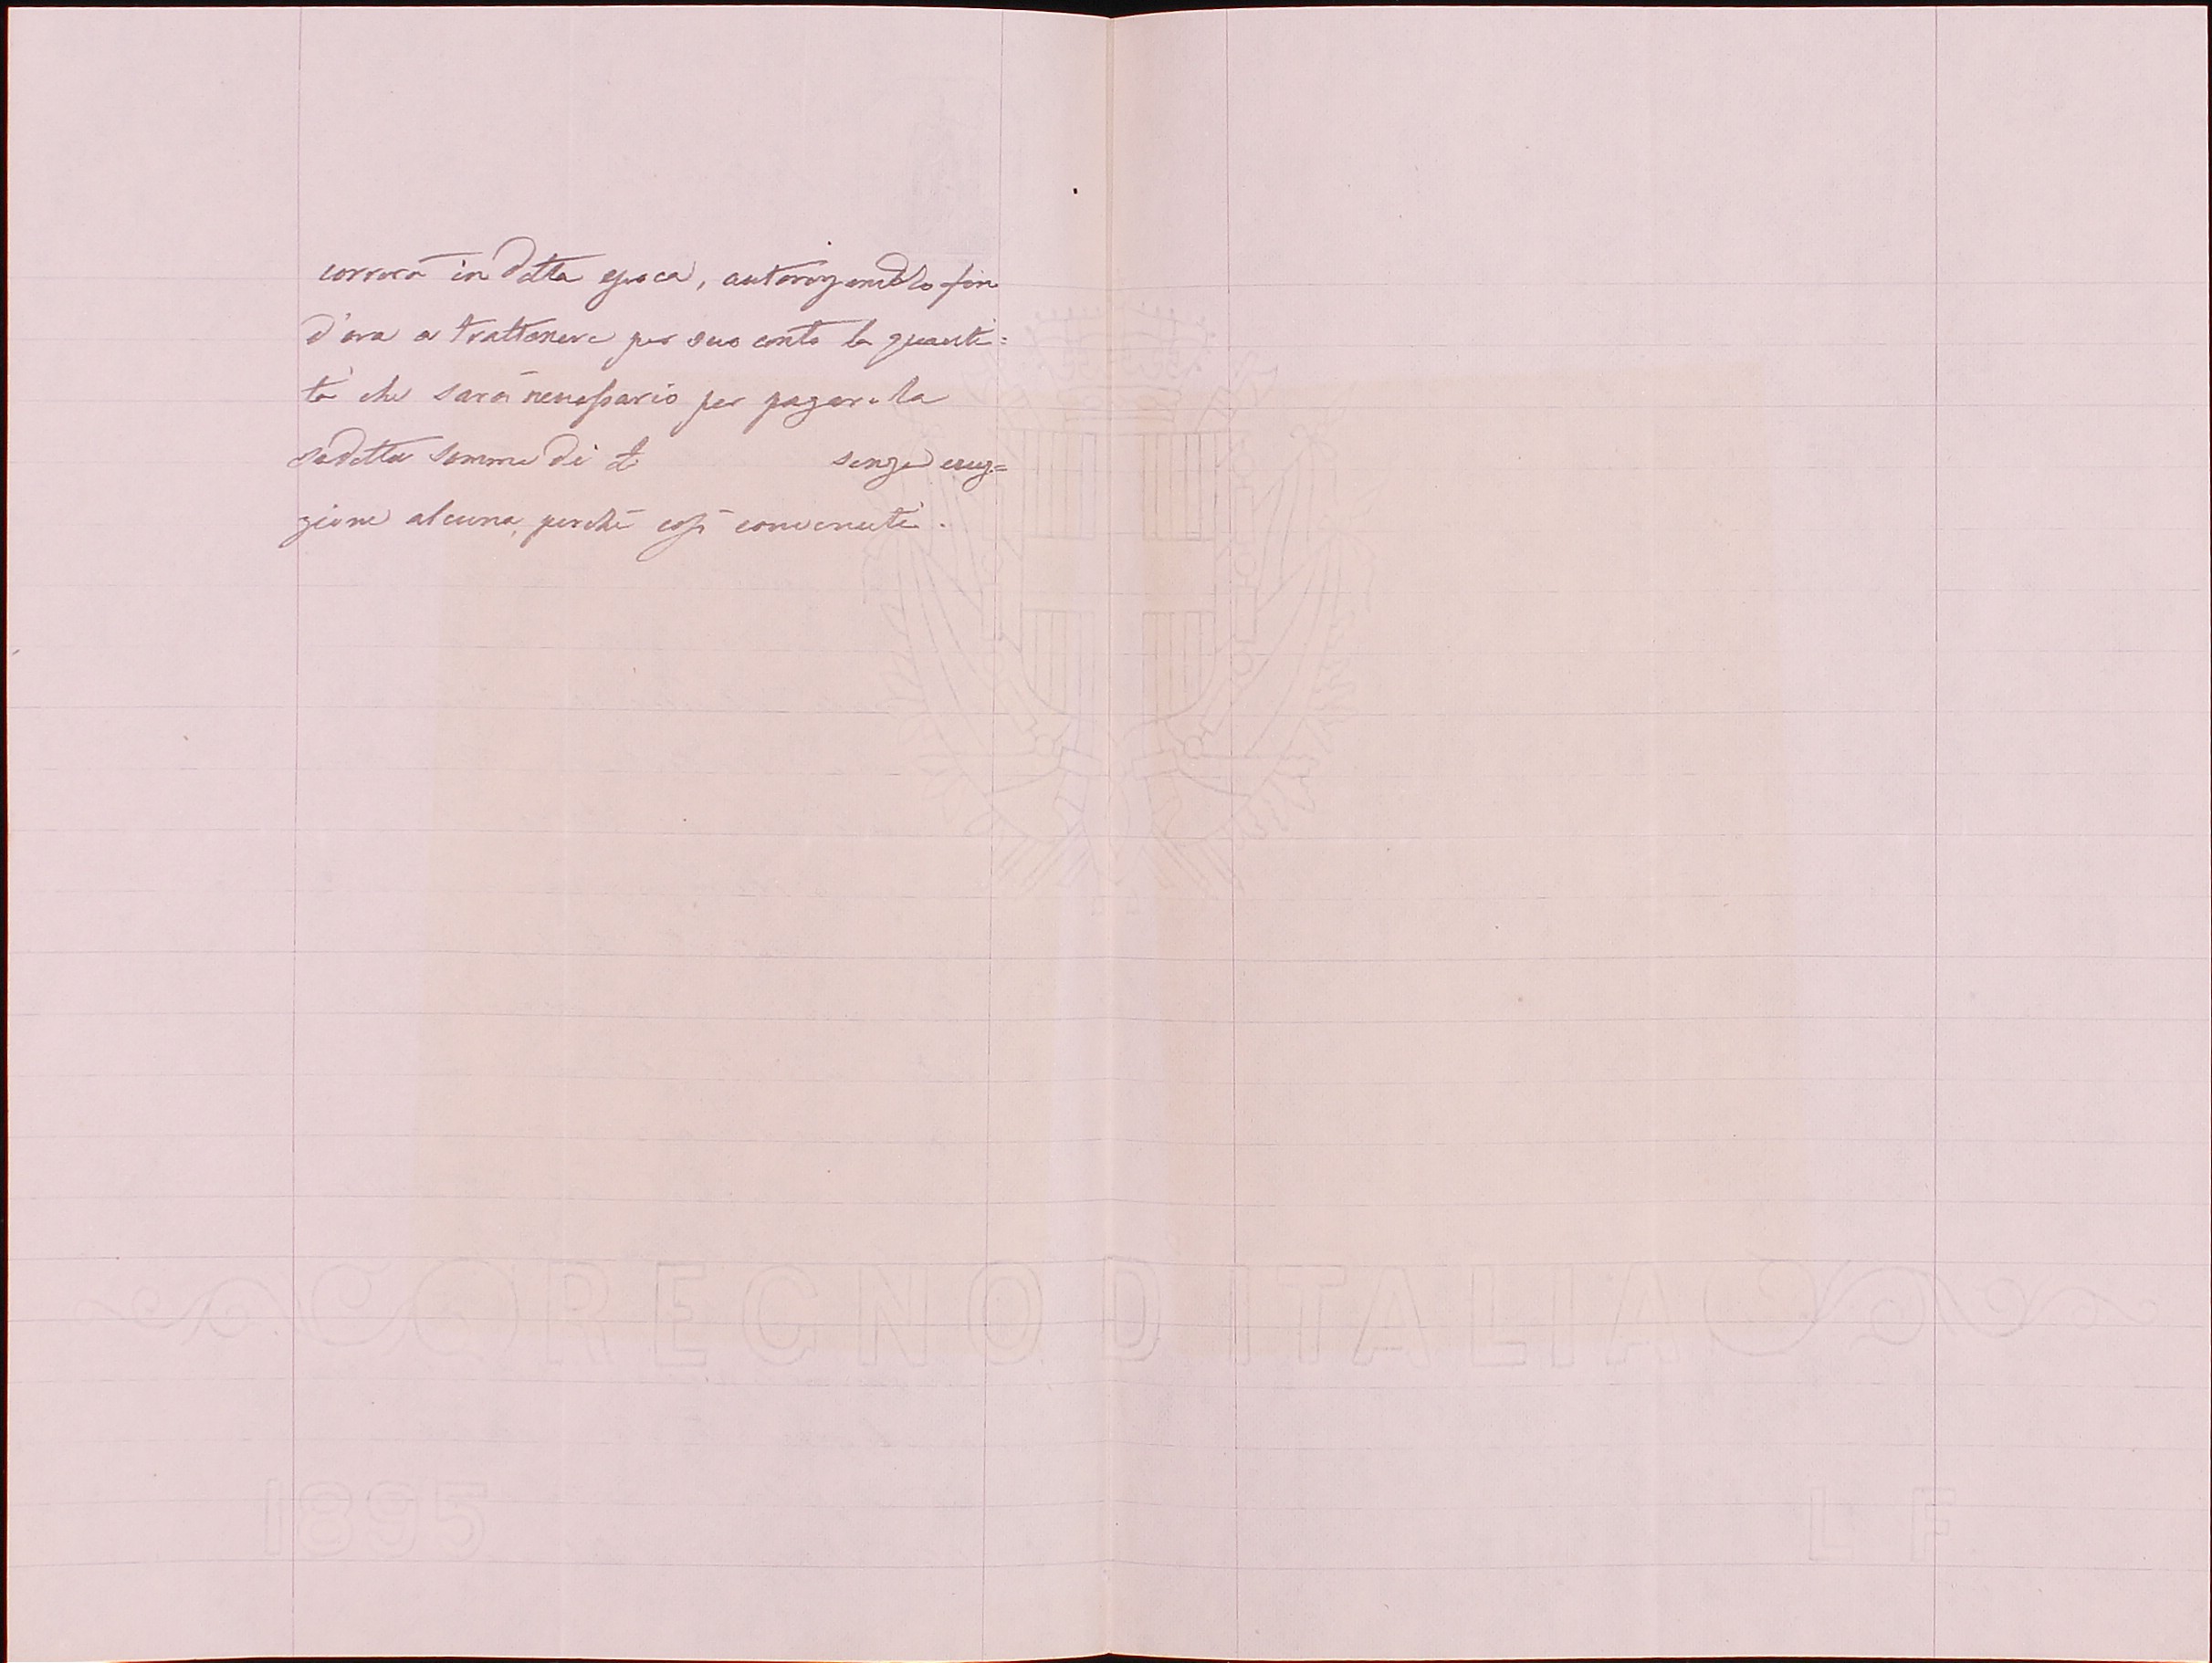 correrà in detta epoca, autorizzandolo fin
d'ora a trattenere per suo conto la quanti=
tà che sarà necessario per pagare la
sudetta somma di £ senza ecce=
zione alcuna, perchè così convenuti.
REGNO D ITALIA
1895 L F